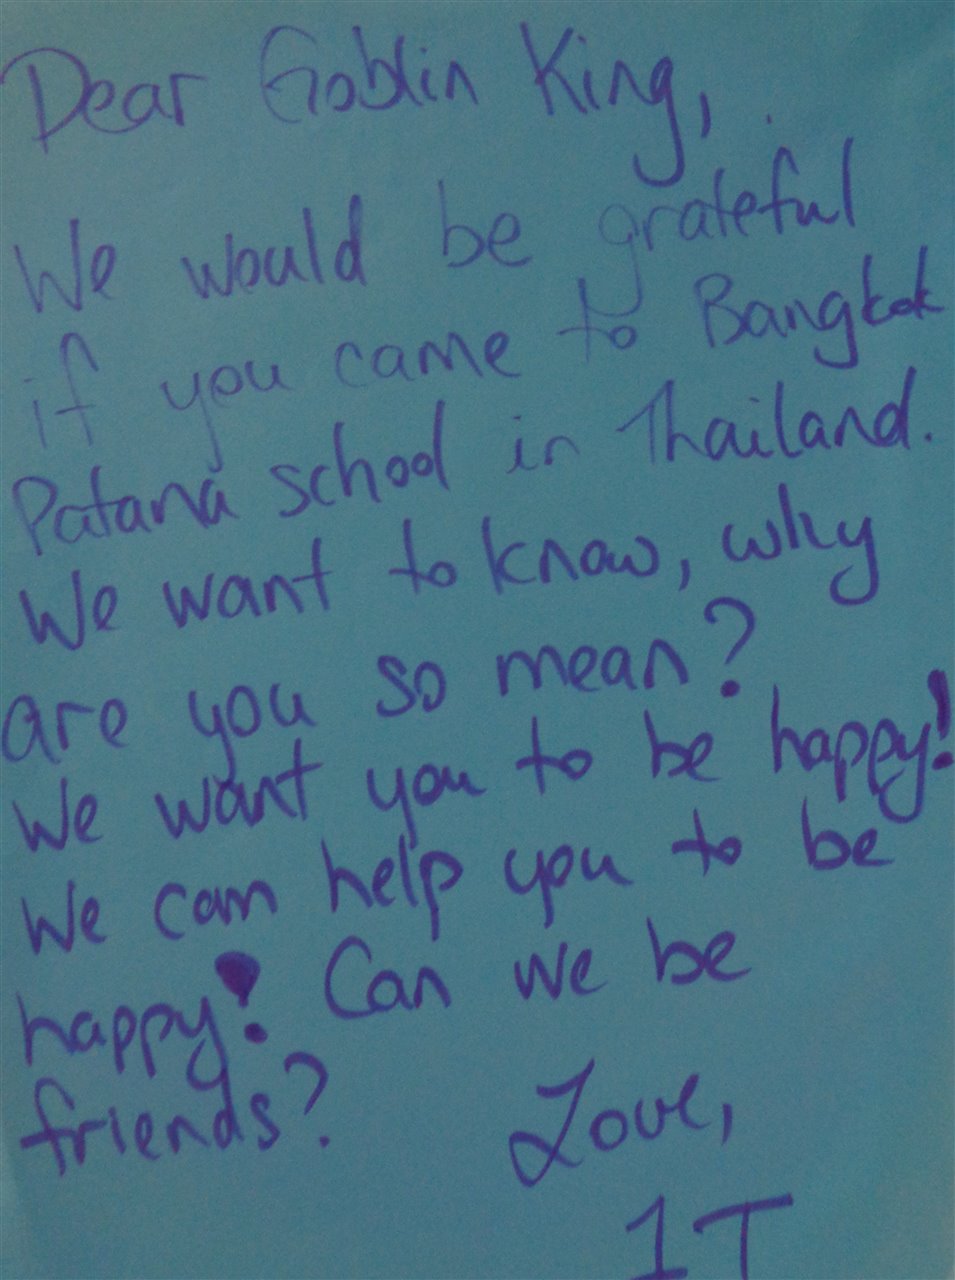 Dear Goblin King,
We would be grateful
if you came to Bangkok
Patana school in Thailand.
We want to know, why
are you so mean?
We want you to be happy!
We can help you to be
happy! Can we be
friends?
Love,
1T